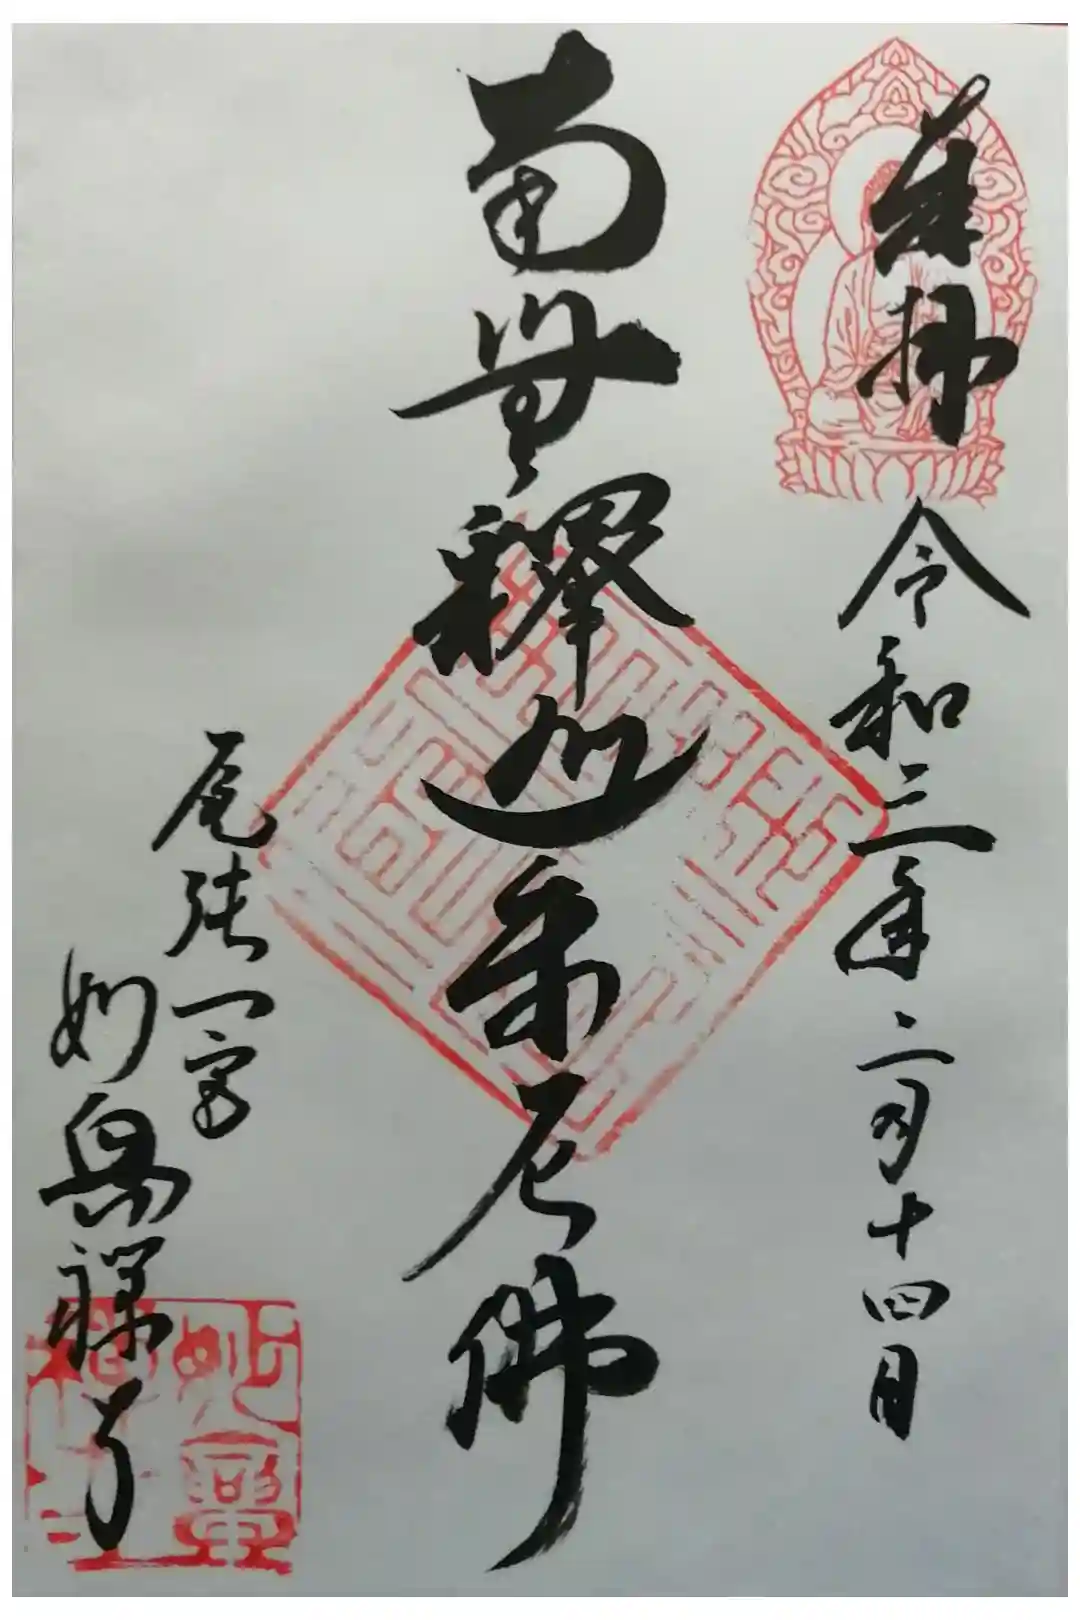 奉拝
令和三年二月十四日
南無釋迦牟尼佛
尾張一宮
妙興禅寺